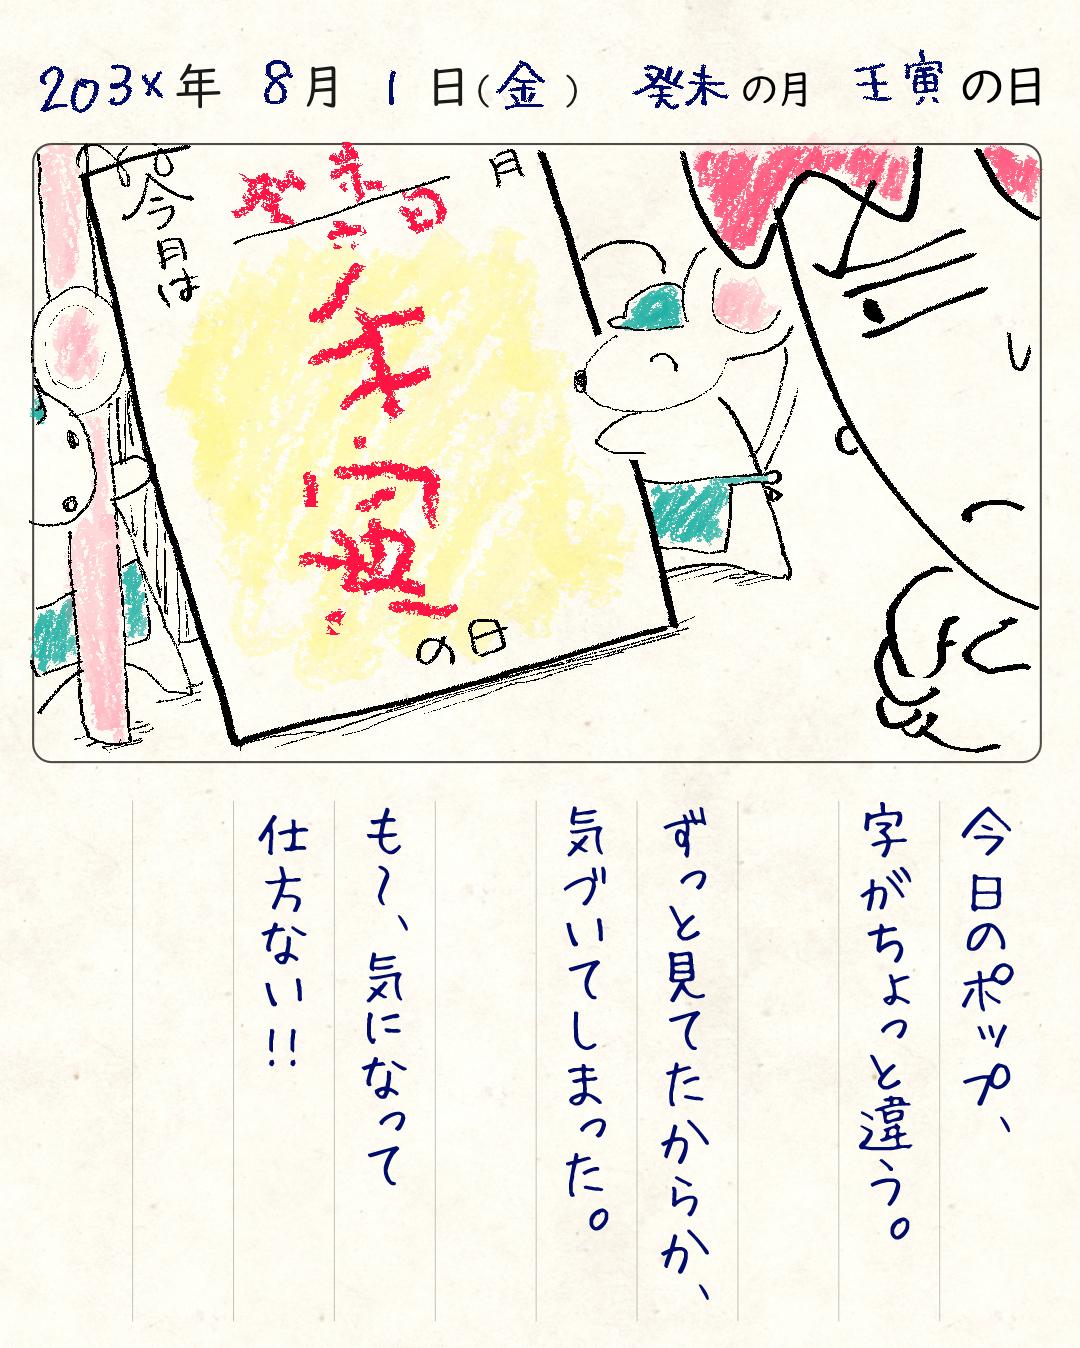 203x年 8月 1日(金) 癸未の月 壬寅の日
癸未 月
今日は
壬寅
の日
今日のポップ、
字がちょっと違う。
ずっと見てたからか、
気づいてしまった。
も〜、気になって
仕方ない!!